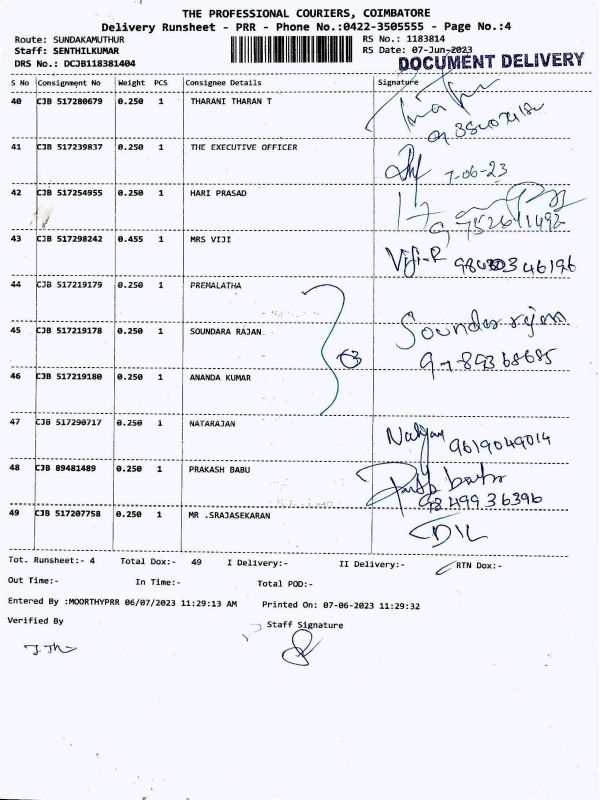 THE PROFESSIONAL COURIERS, COIMBATORE
Delivery Runsheet - PRR - Phone No.:0422-3505555 - Page No.:4
Route: SUNDAKAMUTHUR RS No.: 1183814
Staff: SENTHILKUMAR RS Date: 07-Jun-2023
DRS No.: DCJB118381404 DOCUMENT DELIVERY
S No Consignment No Weight PCS Consignee Details Signature
40 CJB 517280679 0.250 1 THARANI THARAN T
41 CJB 517239837 0.250 1 THE EXECUTIVE OFFICER
7-06-23
42 CJB 517254955 0.250 1 HARI PRASAD
43 CJB 517298242 0.455 1 MRS VIJI Viji-R
44 CJB 517219179 0.250 1 PREMALATHA
45 CJB 517219178 0.250 1 SOUNDARA RAJAN Soundarrajan
46 CJB 517219180 0.250 1 ANANDA KUMAR
47 CJB 517290717 0.250 1 NATARAJAN 9619049014
48 CJB 89481489 0.250 1 PRAKASH BABU
49 CJB 517207758 0.250 1 MR .SRAJASEKARAN
Tot. Runsheet:- 4 Total Dox:- 49 I Delivery:- II Delivery:- RTN Dox:-
Out Time:- In Time:- Total POD:-
Entered By :MOORTHYPRR 06/07/2023 11:29:13 AM Printed On: 07-06-2023 11:29:32
Verified By Staff Signature